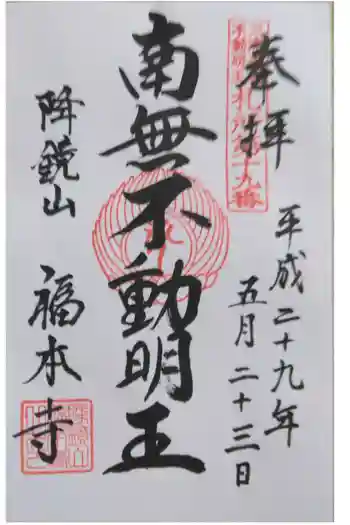 奉拝
平成二十九年
五月二十三日
南無不動明王
降鏡山
福本寺